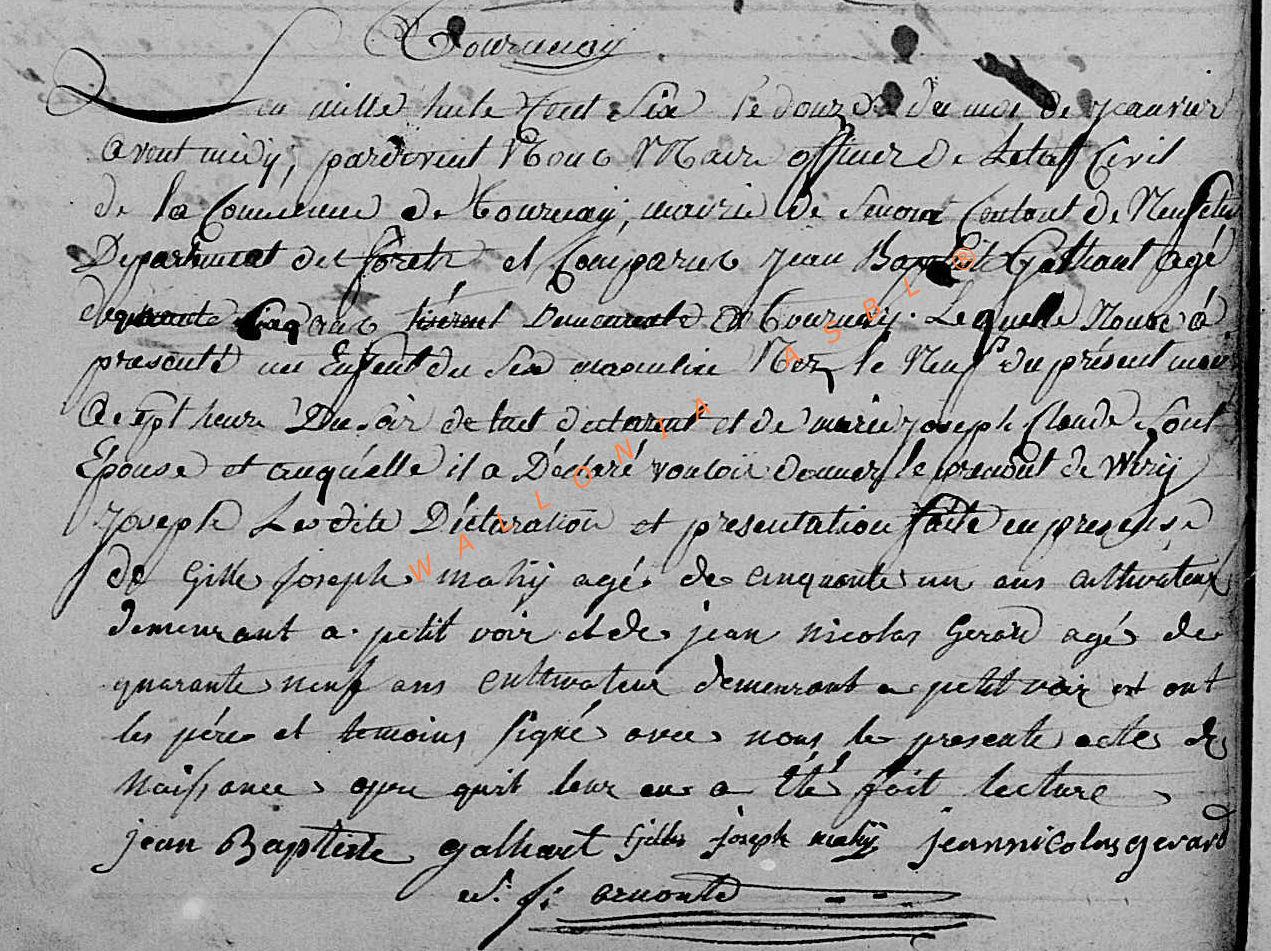 Tournay
L'an mille huite Cent Six le douze du moi de janvier
avent midy, pardevent Nous Maire officier de Letat Civil
de la Commune de Tournay, mairie de Cantont de Neufchau
Departement des forets et Comparus jean Baptiste Galhaut agé
de cinq ans Demeurante a Tournay. Lequelle Nous a
presenté un Enfent du Sex masculine Nez le Neuf du présent moi
a cept heure Du soir de luct declarent et de marie joseph Claude Sont
Epouse et auquélle il a Déclaré vouloir donner le prenont de Wiry
joseph Lesdite Déclaration et presentation faite en presense
de Gille joseph mahy agé de cinquante un ans cultivateur
demeurant a petit voir et de jean nicolas Gerard agé de
quarante neuf ans cultivateur demeurant a petit voir et ont
les pére et temoins signé avec nous le presente acte de
naissance apre qu'il leur en a été fait lecture
jean Baptiste galhaut gilles joseph mahy jeannicolas gerard
arnoute
WALLONIA ASBL ©